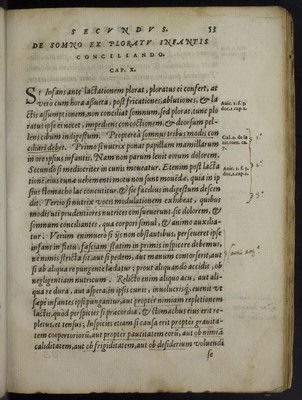 SECVNDVS. 53
DE SOMNO EX PLORATV INFANTIS
CONCILIANDO.
CAP. X.
SI Infans ante lactationem plorat, ploratus ei confert, at
vero cum hora assueta, post fricationes, ablutiones, & la
ctis assumptionem, non conciliat somnum, sed plorat, tunc plo
ratus ipse ei nocet, impediens concoctionem, & deorsum pel-
lens cibum indigestum. Propterea somnus tribus modis con
ciliari debet. Primo si nutrix ponat papillam mamillarum
in ore ipsius infantis. Nam non parum lenit eorum dolorem.
Secundo si mediocriter in cunis moueatur. Etenim post lacta
tionē, eius cuna vehementi motu non sunt mouēdæ. quia in ip
sius stomacho lac concutitur, & sic facilius indigestum descen
dit. Tertio si nutrix vocis modulationem exhibeat, quibus
modis uti prudentiores nutrices consueuerunt. sic dolorem, &
somnum conciliantes, qua corpori simul, & animo auxilia-
tur. Verùm enimuero si ijs non obstantibus, perseueret ipse
infans in fletu, fasciam statim in primis inspicere debemus,
ne nimis stricta sit, aut si pedem, aut manum contorserit, aut
si ab aliqua re pungente lædatur, prout aliquando accidit, ob
negligentiam nutricum. Relicto enim aliquo acu, aut ali-
qua re dura, aut aspera in ipsis cunis, inuolucrisq́, euenit ut
sæpè infantes ipsi pungantur, aut propter nimiam repletionem
lactis, quod perspicies si præcordia, & stomachus eius erit re-
pletus, et tensus, Inspicies etiam si causa erit propter grauita-
tem coopertoriorū, aut propter paucitatem eorū, aut ob nimiā
caliditatem, aut ob frigiditatem, aut ob desiderium voluendi
se
Auic. 1. f. 3.
doc. 1. cap. 2.
Auic. 1. f. 3.
doc. 1. cap. 2.